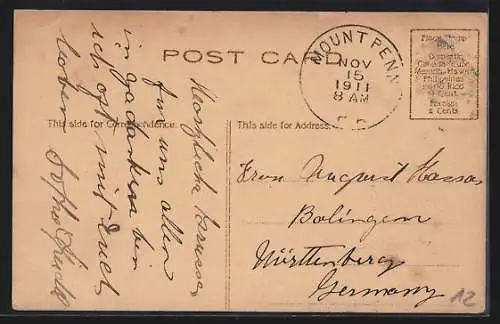 POST CARD
MOUNT PENN
NOV
15
1911
8 AM
Place Stamp
Here
Domestic
Canada, Cuba
Mexico, Hawaii
Philippines
Porto Rico
1 Cent
Foreign
2 Cents
This side for Correspondence.
This side for Address.
Herzliche Grüsse
von uns allen
in gedanken bin
ich oft mit Euch
Frau August
Balingen
Württenberg
Germany
12